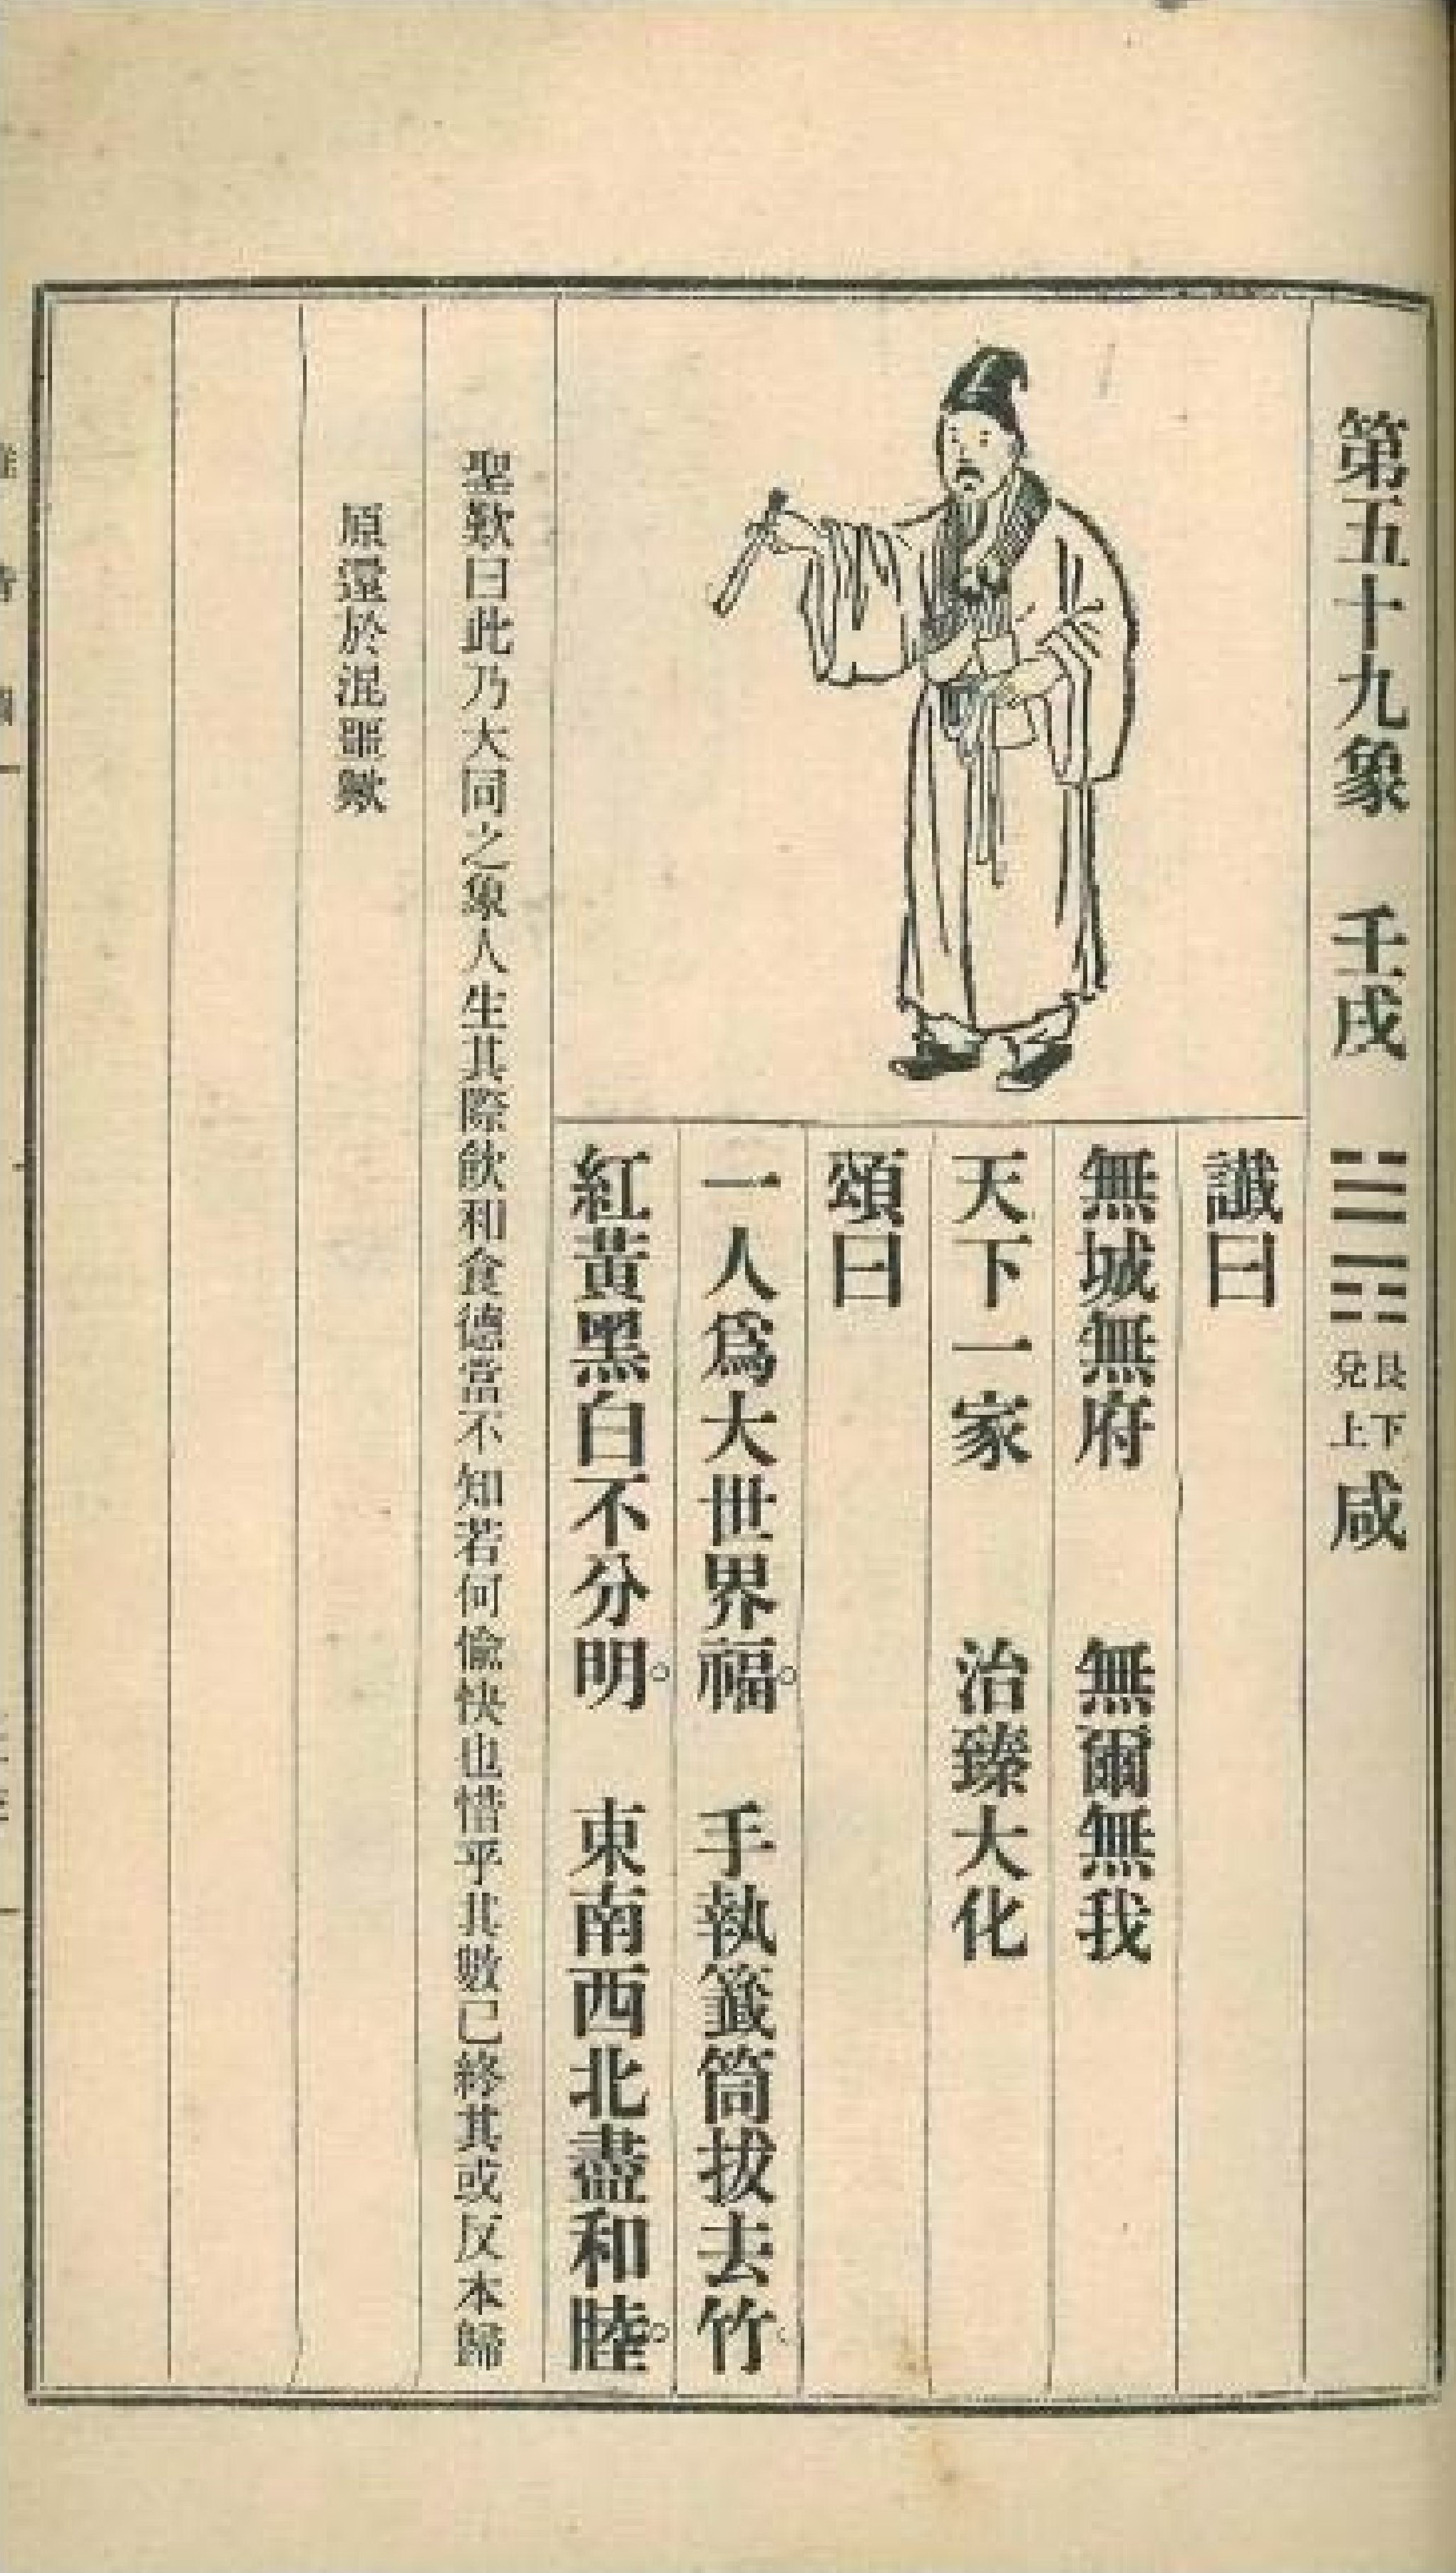 第五十九象 壬戌 艮下兌上 咸
讖曰
無城無府 無爾無我
天下一家 治臻大化
頌曰
一人爲大世界福。 手執籤筒拔去竹。
紅黃黑白不分明。 東南西北盡和睦。
聖歎曰此乃大同之象人生其際飲和食德當不知若何愉快也惜乎其數已終其或反本歸
原還於混噩歟